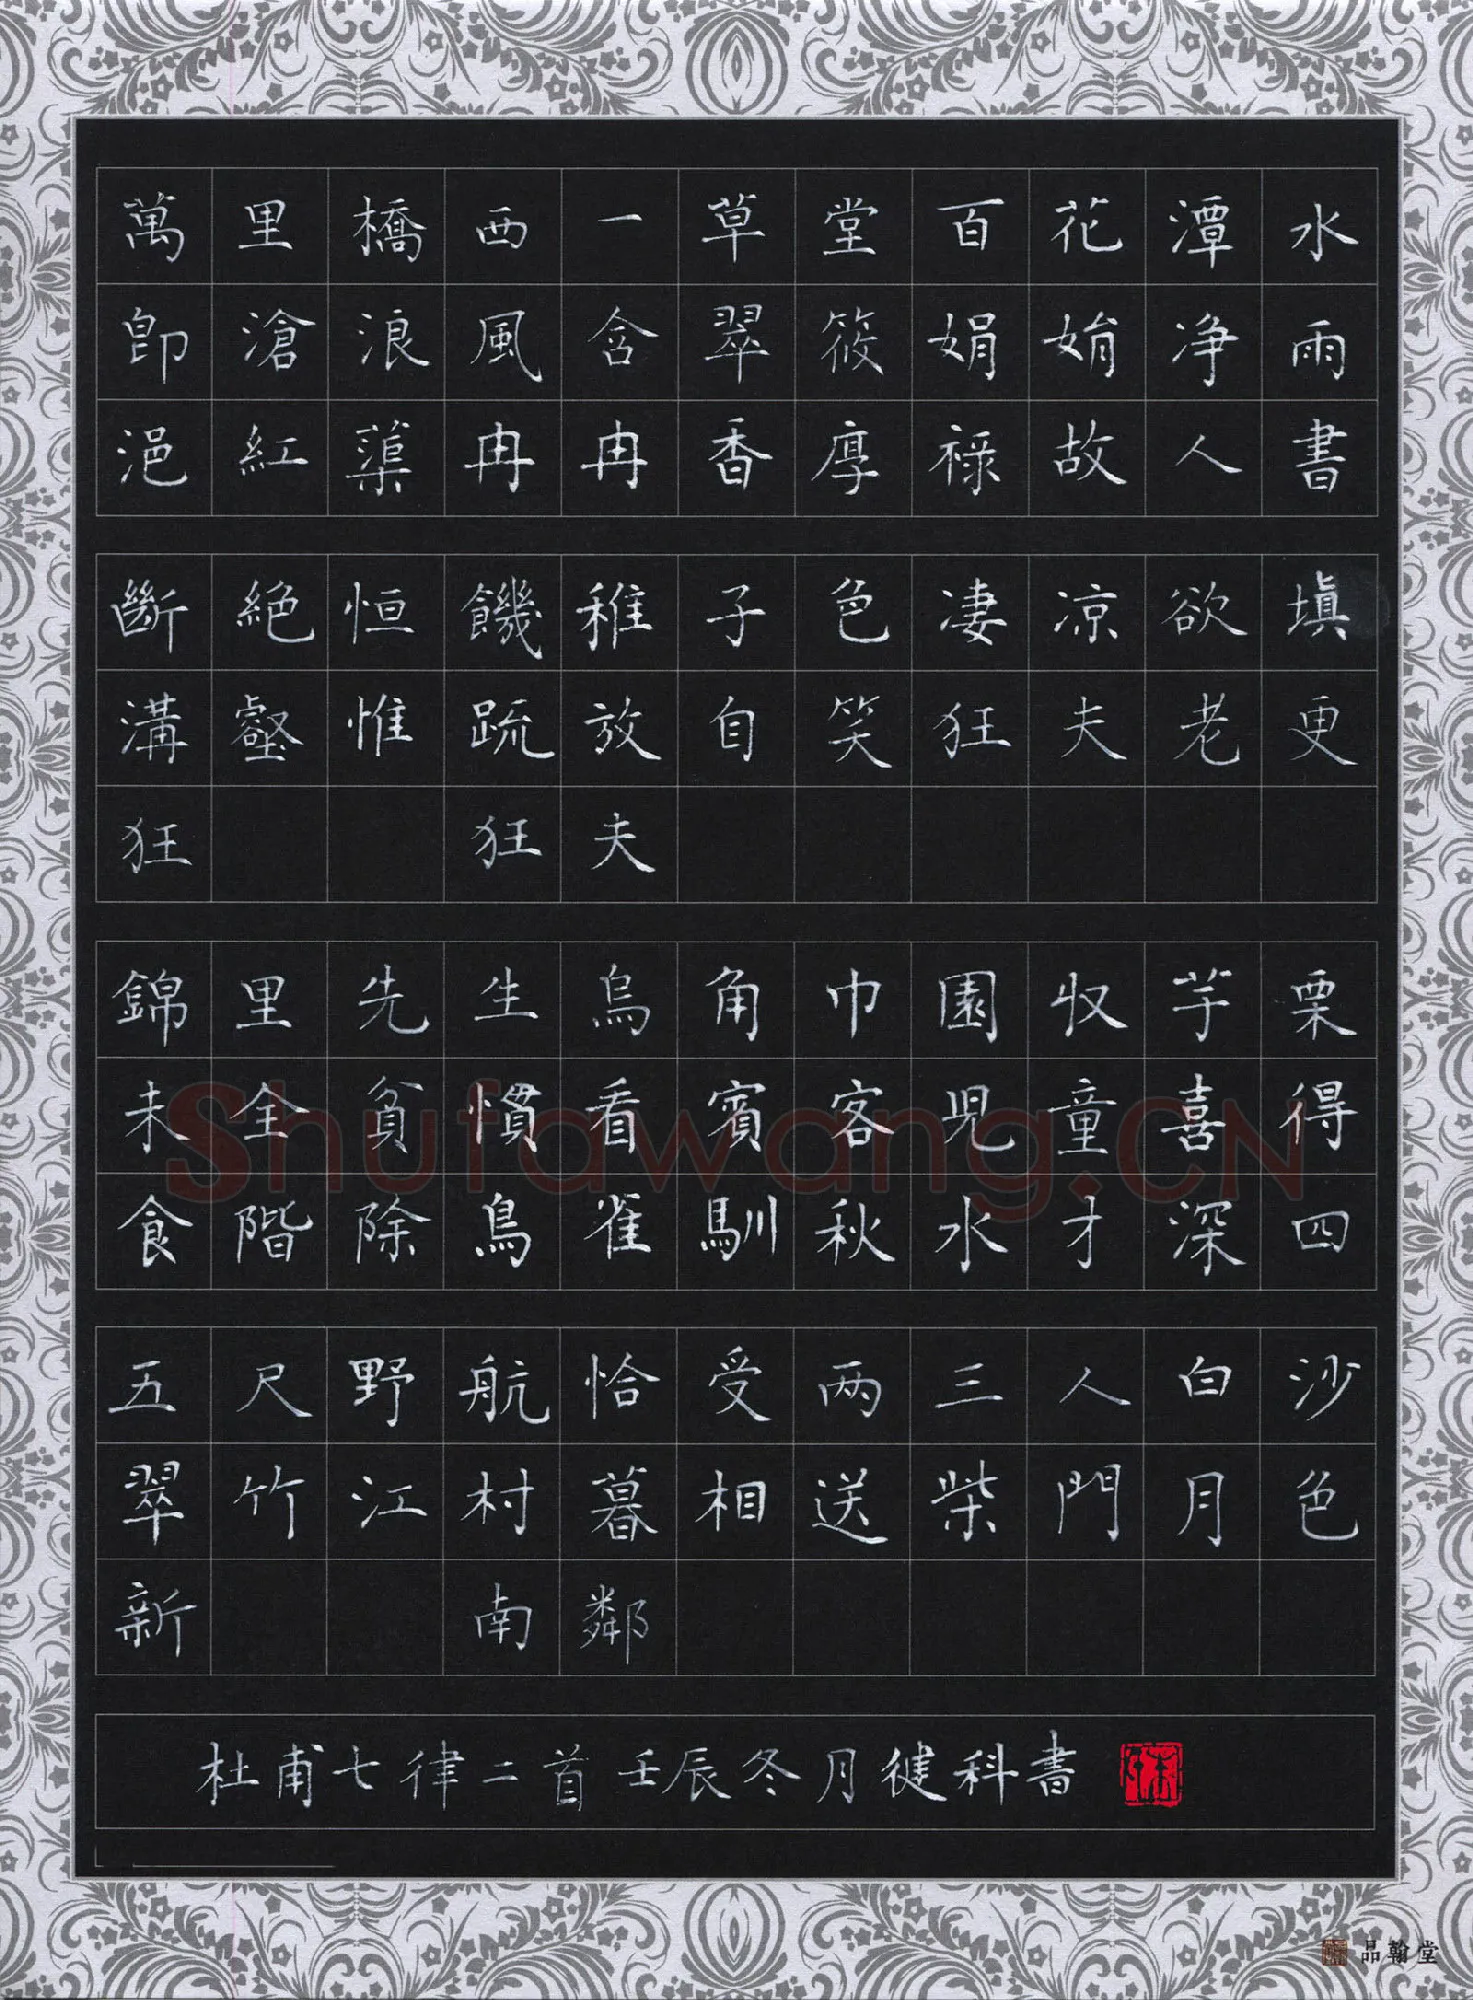 萬里橋西一草堂百花潭水
即滄浪風含翠筱娟娟净雨
浥紅蕖冉冉香厚祿故人書
斷絕恒饑稚子色凄凉欲填
溝壑惟疏放自笑狂夫老更
狂 狂夫
錦里先生烏角巾園收芋栗
未全貧慣看賓客兒童喜得
食階除鳥雀馴秋水才深四
五尺野航恰受两三人白沙
翠竹江村暮相送柴門月色
新 南鄰
杜甫七律二首壬辰冬月健科書
Shufawang.CN
品翰堂